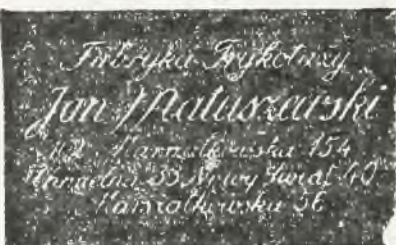 Fabryka Trykotaży
Jan Matuszewski
Marszałkowska 154
33 Nowy Świat 40
Marszałkowska 56